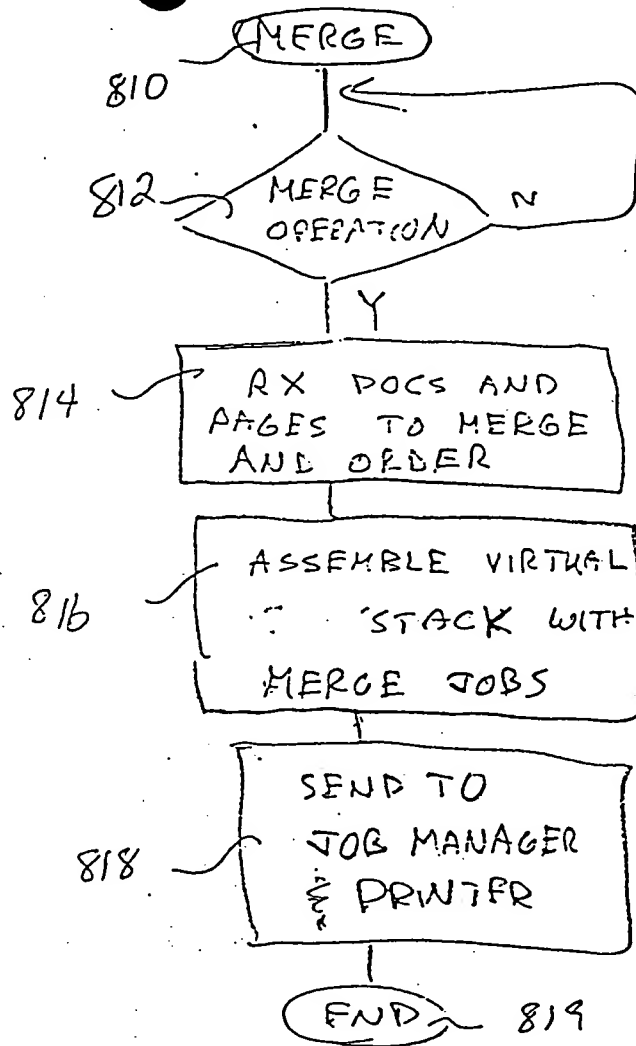 MERGE
810
812
MERGE
OPERATION
N
Y
814
RX DOCS AND
PAGES TO MERGE
AND ORDER
816
ASSEMBLE VIRTUAL
STACK WITH
MERGE JOBS
818
SEND TO
JOB MANAGER
& PRINTER
END
819